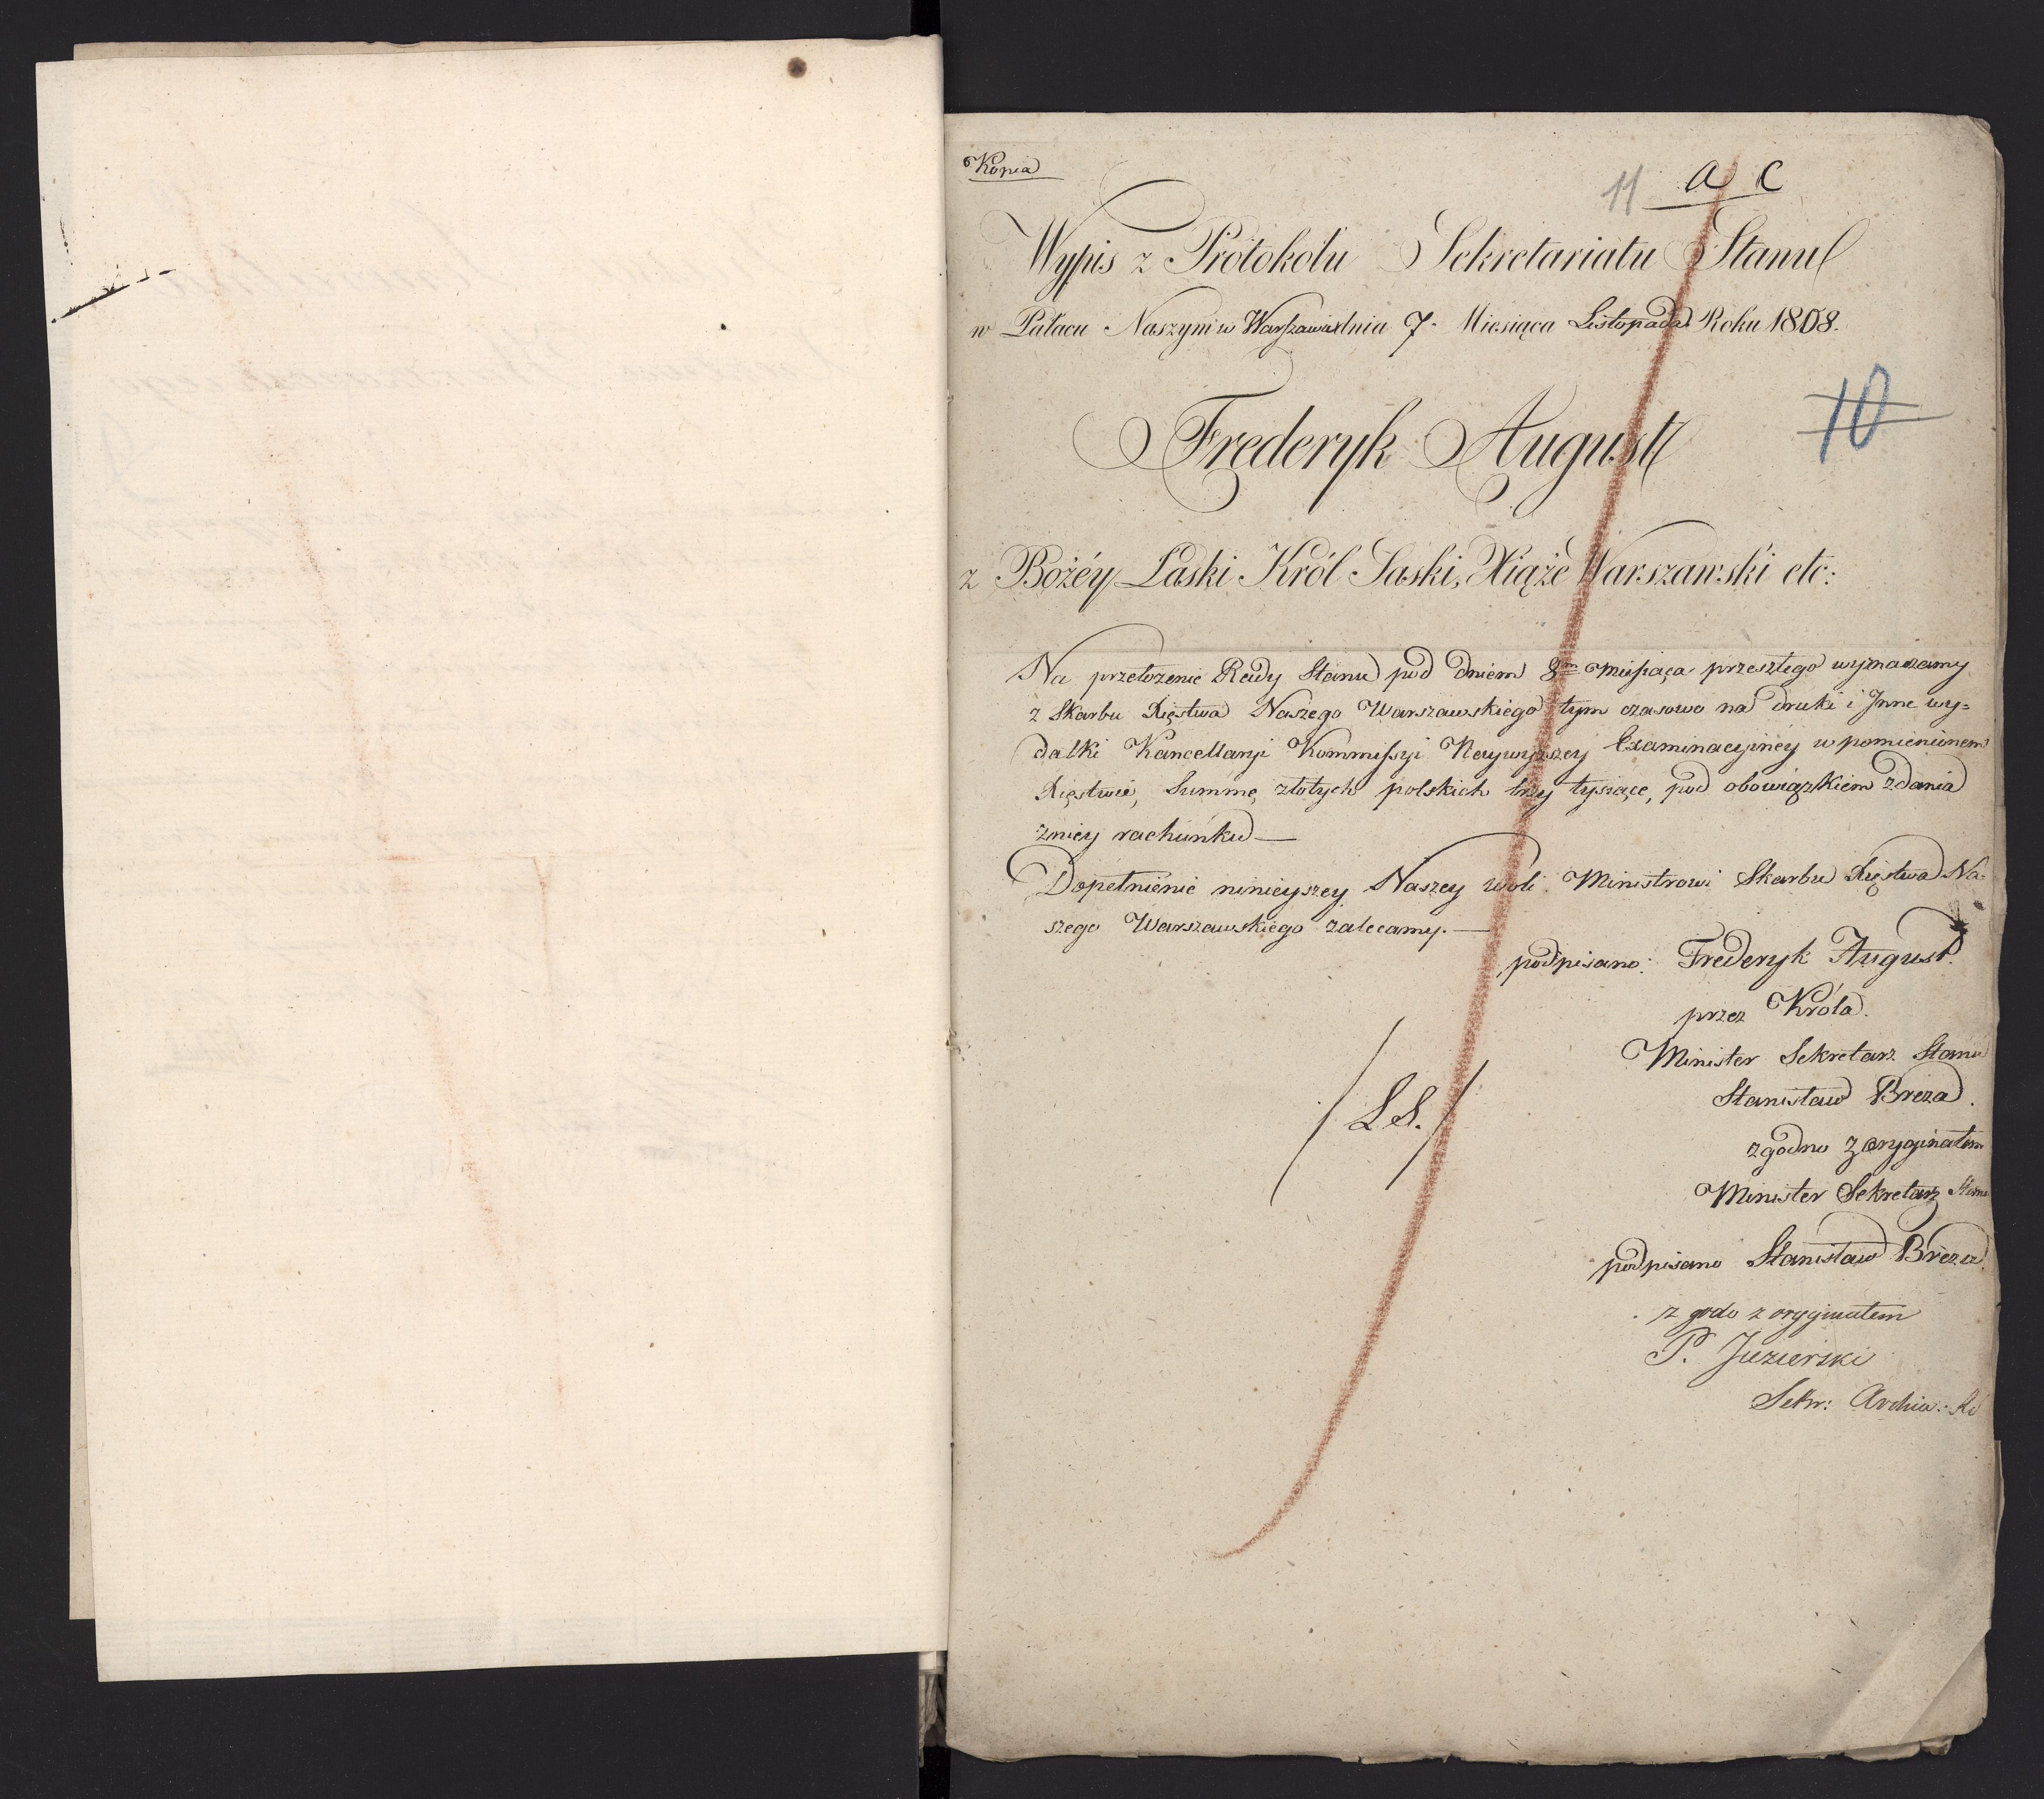 Kopia
11 a c
Wypis z Protokołu Sekretariatu Stanu
w Pałacu Naszym w Warszawie dnia 7. Miesiąca Listopada Roku 1808.
10
Frederyk August
z Bożéy Łaski Król Saski, Xiąże Warszawski etc:
Na przełożenie Rady Stanu pod dniem 8m Miesiąca przeszłego wyznaczamy
z Skarbu Xięstwa Naszego Warszawskiego tym czasowo na druki i Jnne wy=
datki Kancellaryi Kommissyi Naywyższey Examinacyiney w pomienionem
Xięstwie, Summę złotych polskich trzy tysiące, pod obowiązkiem zdania
zniey rachunku —
Dopełnienie ninieyszey Naszey woli Ministrowi Skarbu Xięstwa Na-
szego Warszawskiego zalecamy. —
podpisano: Frederyk August.
przez Króla.
Minister Sekretarz Stanu
Stanisław Breza.
/ L.S. /
zgodno z oryginałem
Minister Sekretarz Stanu
podpisano Stanisław Breza.
zgodo z oryginałem
P. Jezierski
Sekr: Archiw: